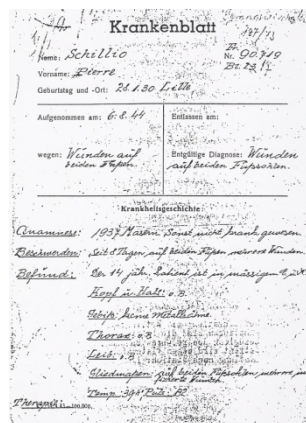 Krankenblatt
Name: Schillio
Nr. 90.719
Vorname: Pierre
Geburtstag und -Ort: 21.1.30 Lille
Aufgenommen am: 6.8.44
Entlassen am:
wegen: Wunden auf
beiden Füßen.
Entgültige Diagnose: Wunden
auf beiden Fußsohlen.
Krankheitsgeschichte:
Anamnese: 1937 Masern. Sonst nicht krank gewesen.
Beschwerden: Seit 8 Tagen auf beiden Füßen mehrere Wunden.
Befund: Der 14 jähr. Patient ist in mässigem
Kopf u. Hals: o.B.
Gebiß: keine Metallzähne.
Thorax: o.B.
Leib: o.B.
Gliedmaßen: auf beiden Fußsohlen, mehrere
Temp: Puls:
Therapie: